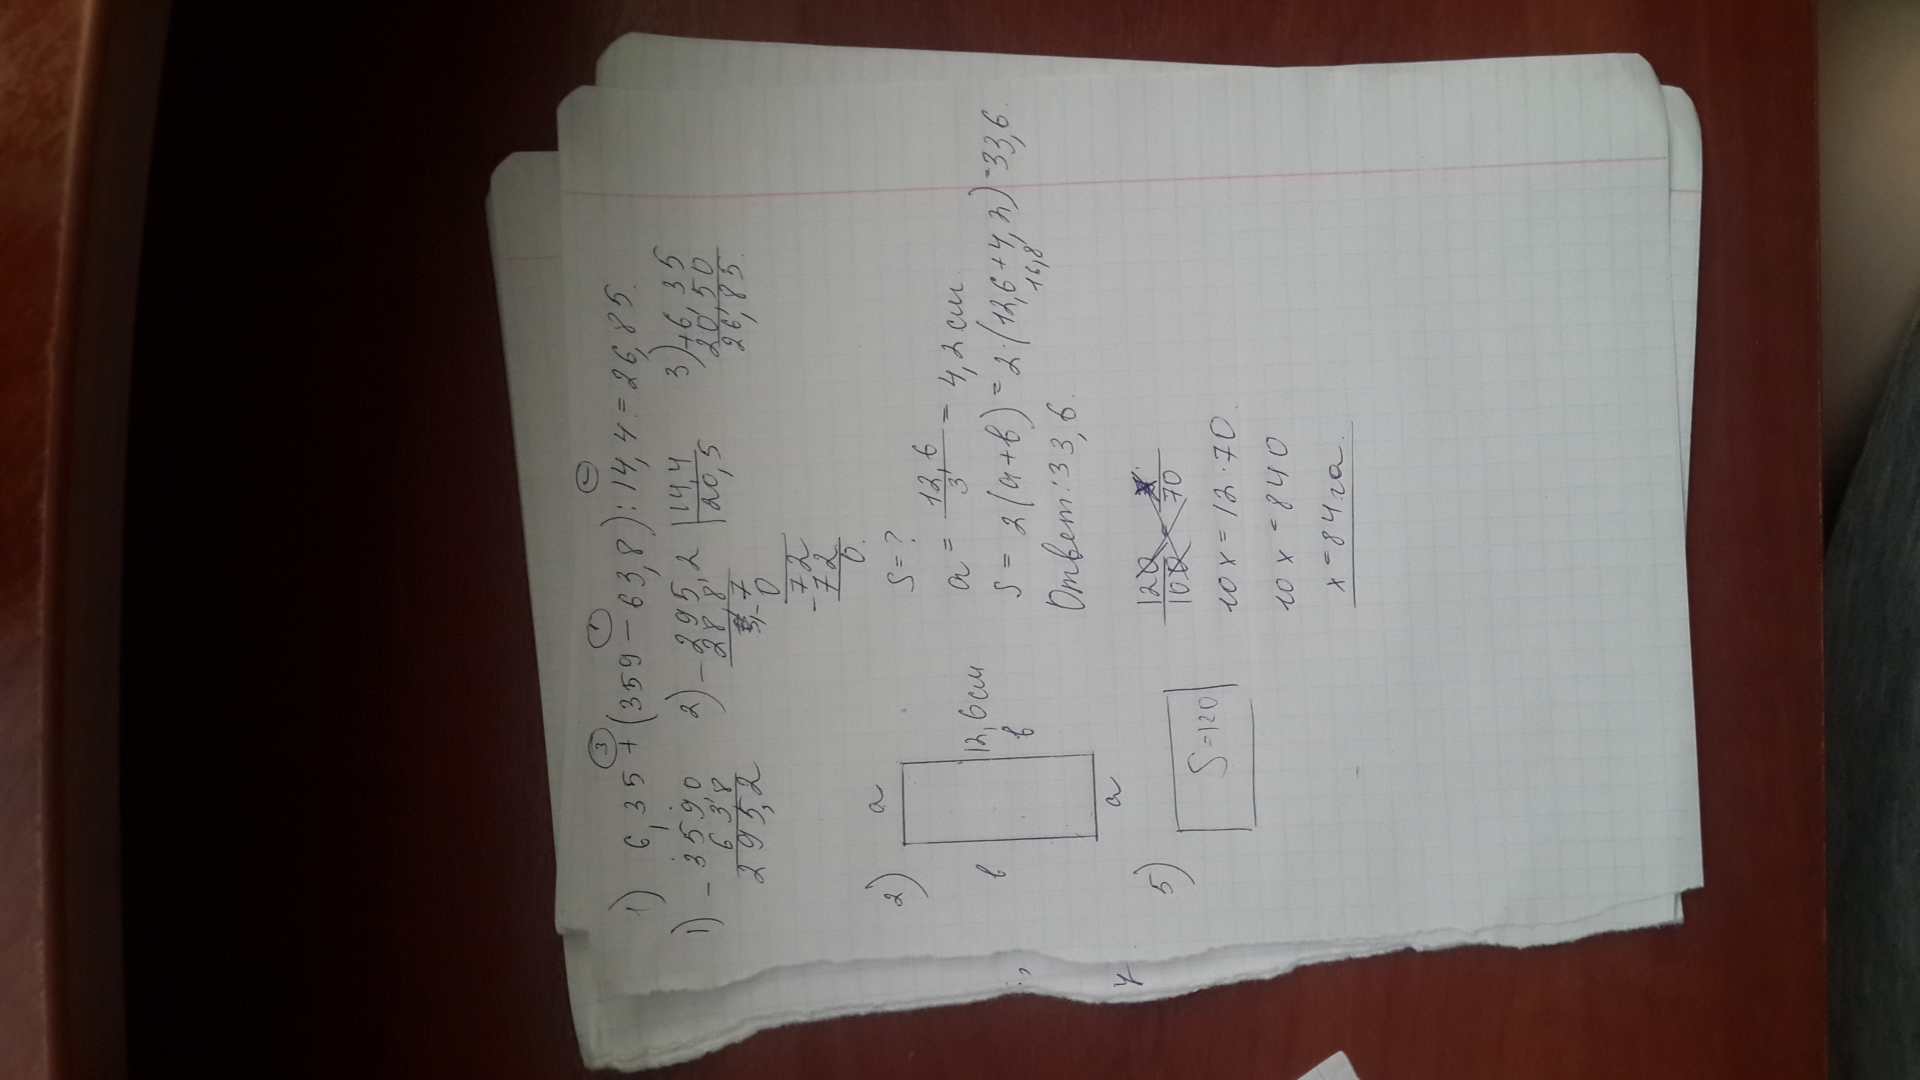 ③ ① ②
1) 6,35 + (359 - 63,8) : 14,4 = 26,85.
1) - 359,0 2) - 295,2 | 14,4 3) + 6,35
63,8 288 20,5 20,50
295,2 - 7 26,85.
0
- 72
72
0.
2) a S = ?
в 12,6 см
в
a
a = 12,6 / 3 = 4,2 см.
S = 2 (a + в) = 2 · (12,6 + 4,2) = 33,6.
16,8
Ответ: 33,6.
5) S = 120
120 / 100 = x / 70
10 x = 12 · 70.
10 x = 840
x = 84 га.